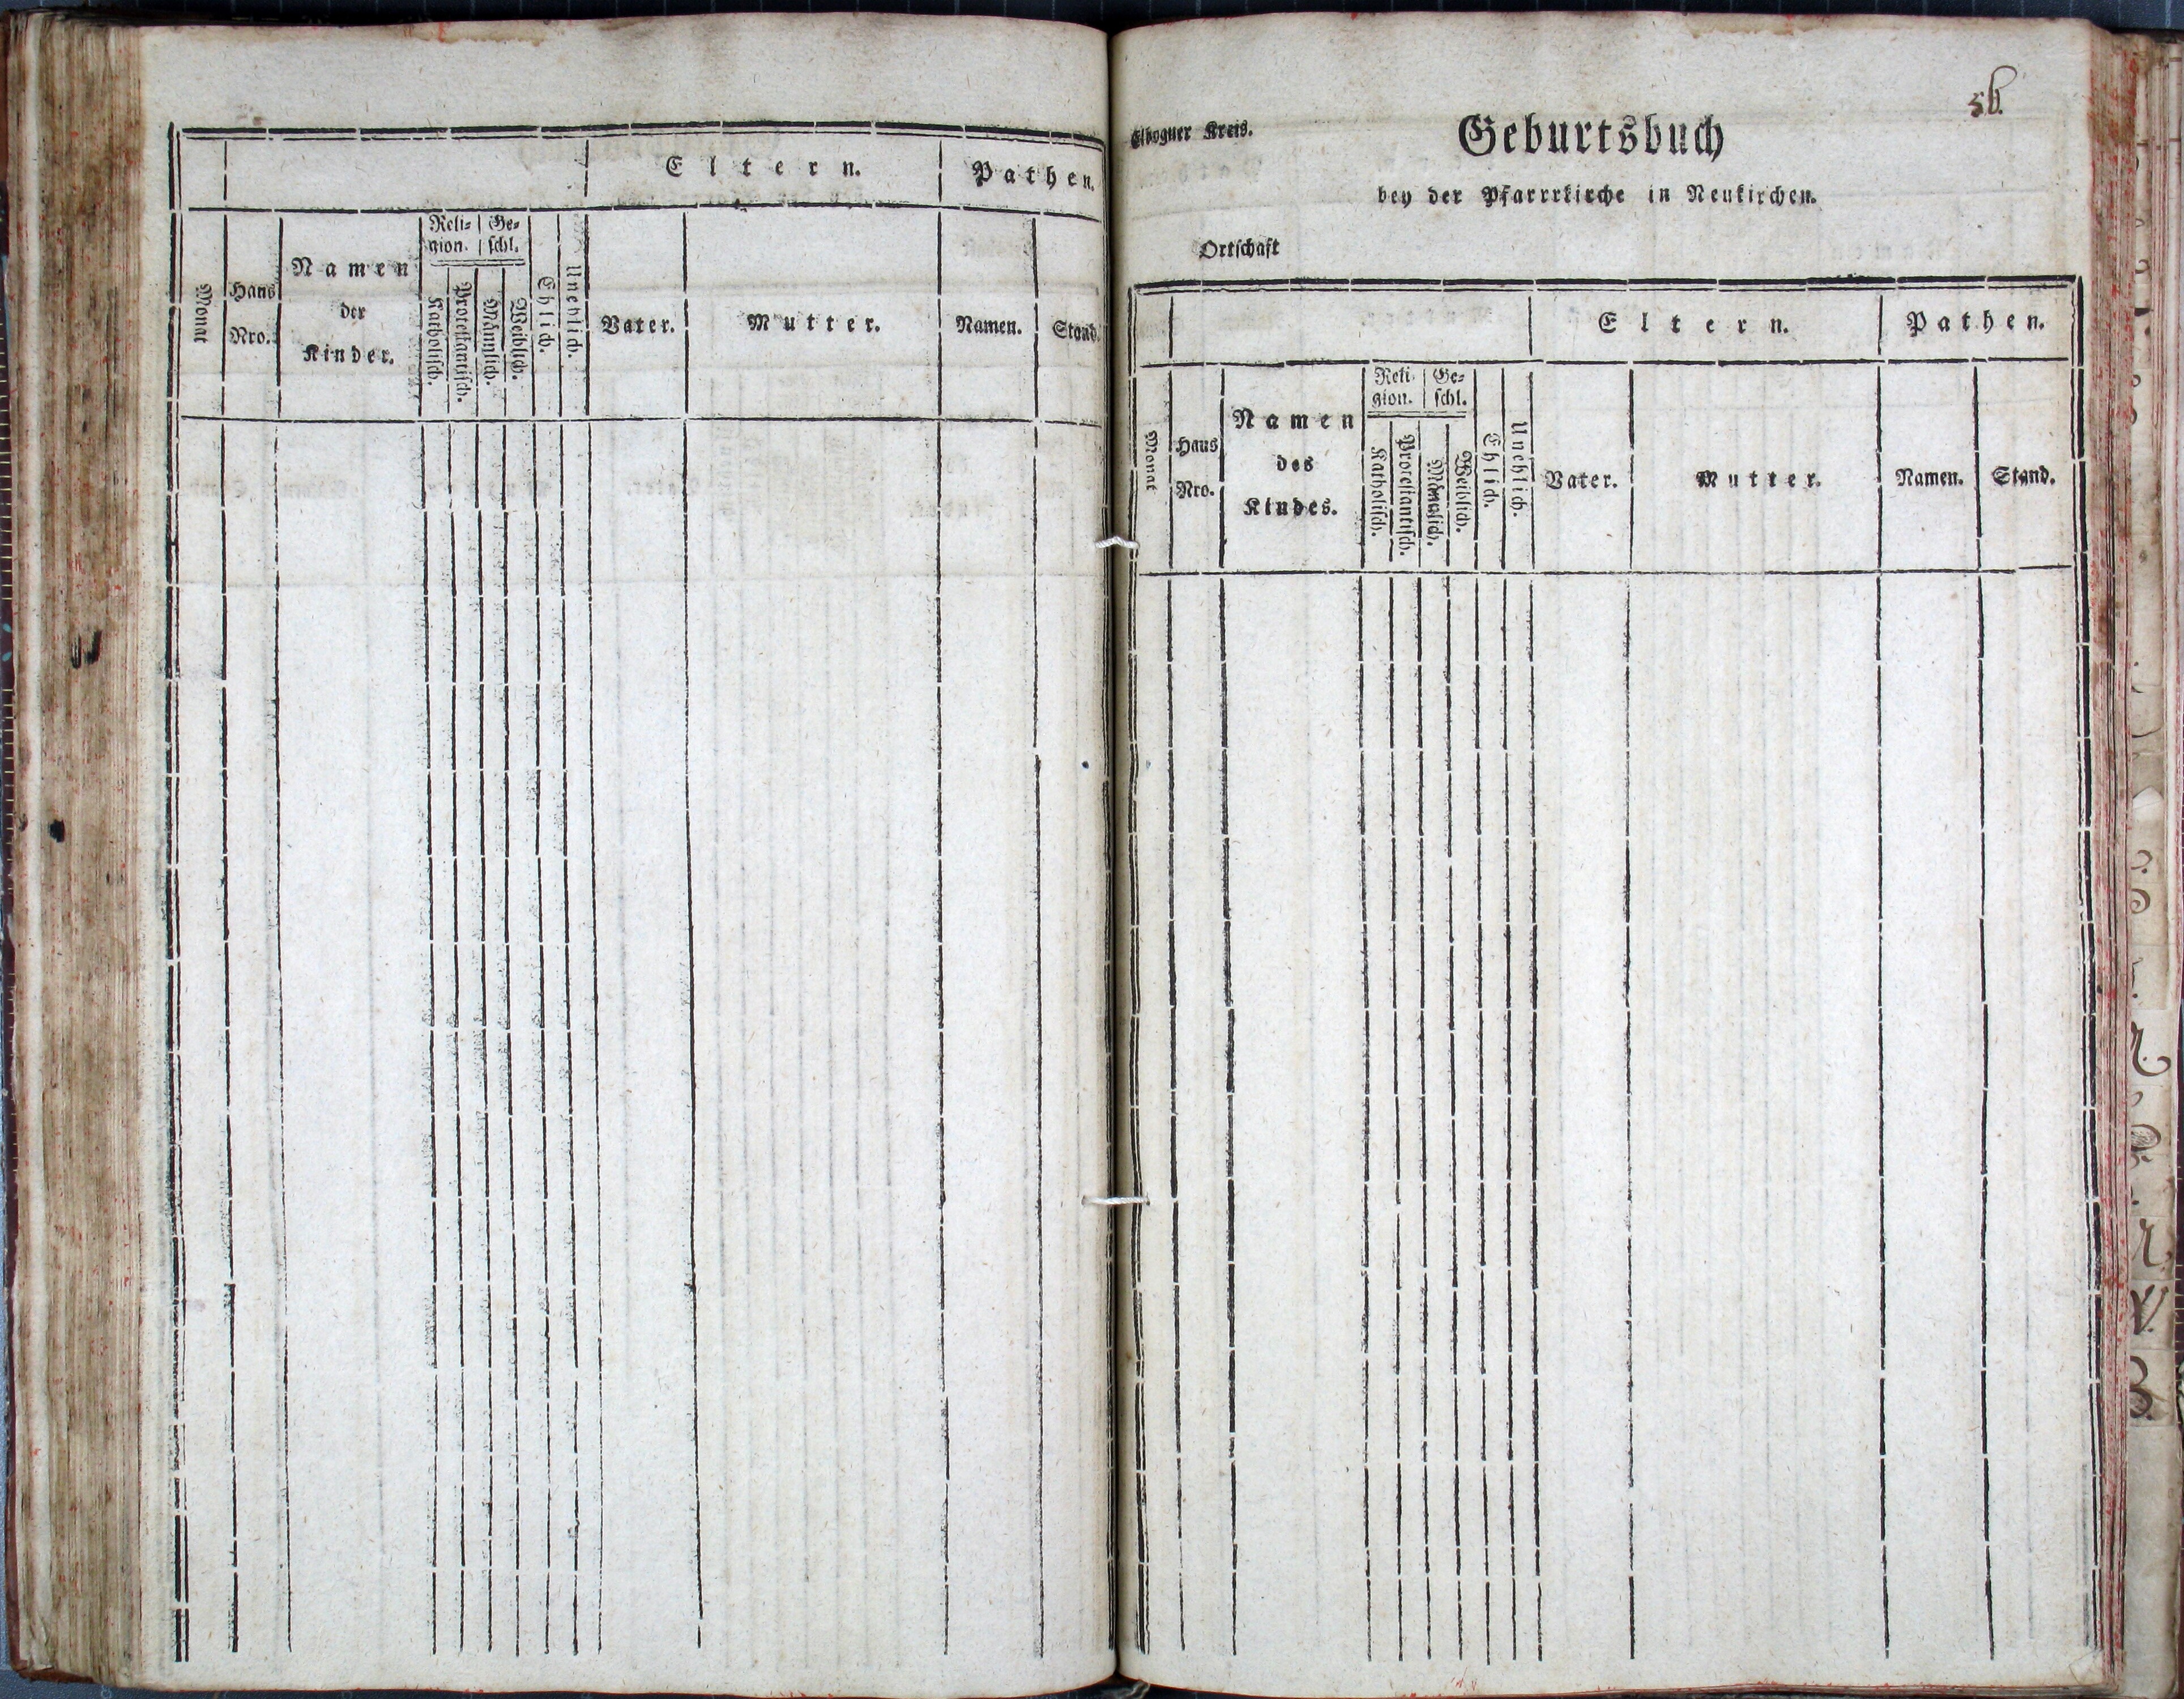 Eltern. Pathen.
Monat
Haus Nro.
Namen der Kinder.
Reli= gion.
Katholisch.
Protestantisch.
Ge= schl.
Männlich.
Weiblich.
Ehlich.
Unehlich.
Vater.
Mutter.
Namen.
Stand.
Elbogner Kreis.
Geburtsbuch
bey der Pfarrrkirche in Neukirchen.
Ortschaft
Eltern. Pathen.
Monat
Haus Nro.
Namen des Kindes.
Reli= gion.
Katholisch.
Protestantisch.
Ge= schl.
Männlich.
Weiblich.
Ehlich.
Unehlich.
Vater.
Mutter.
Namen.
Stand.